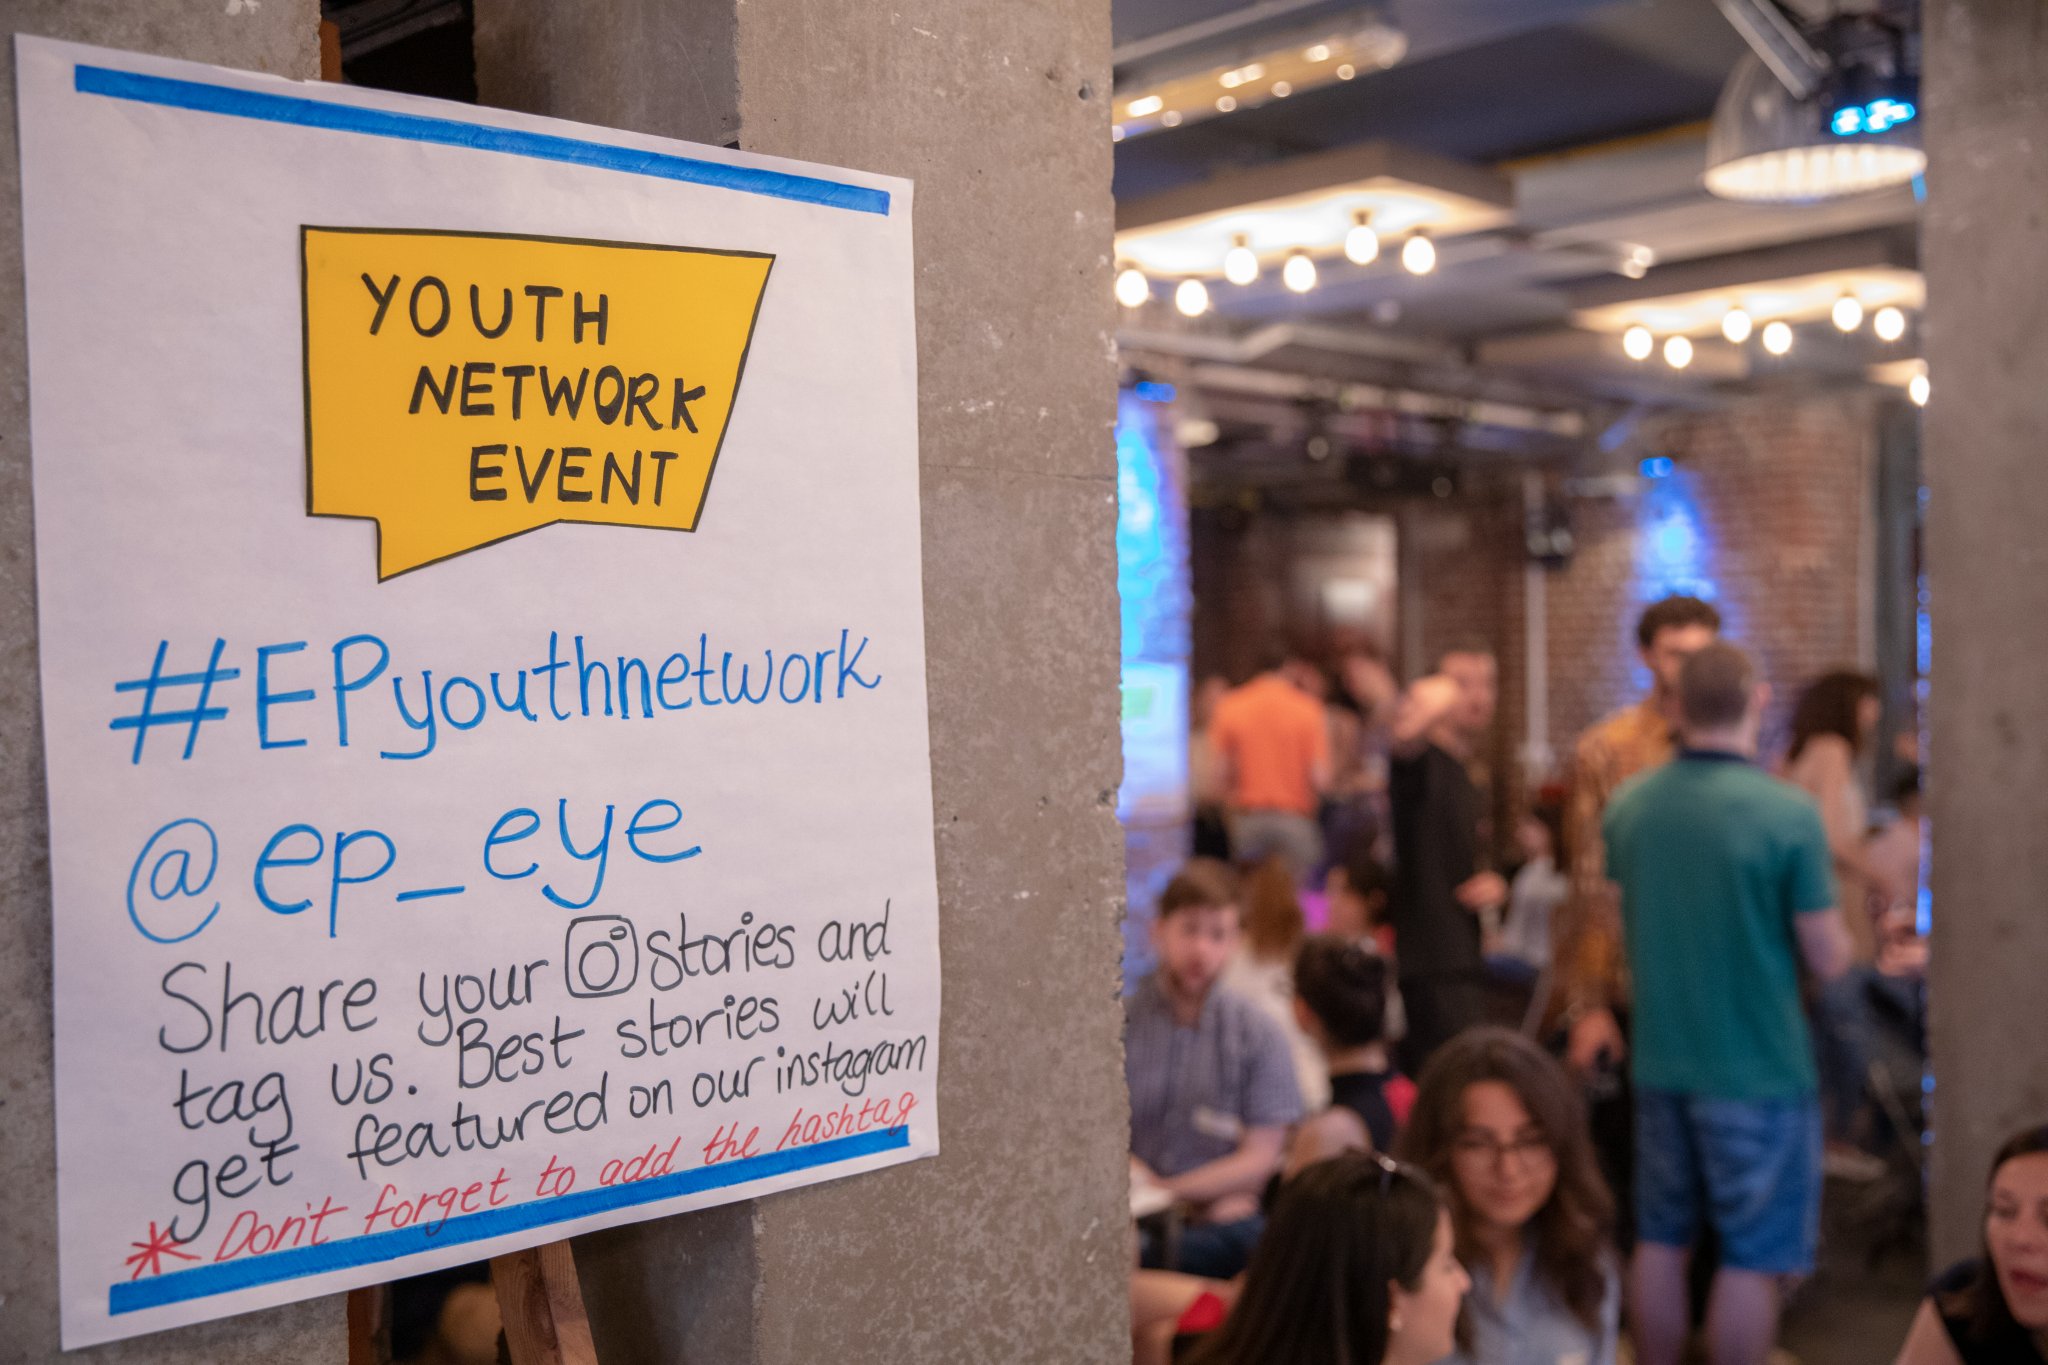 YOUTH
NETWORK
EVENT
#EPyouthnetwork
@ep_eye
Share your stories and
tag us. Best stories will
get featured on our instagram
* Don't forget to add the hashtag